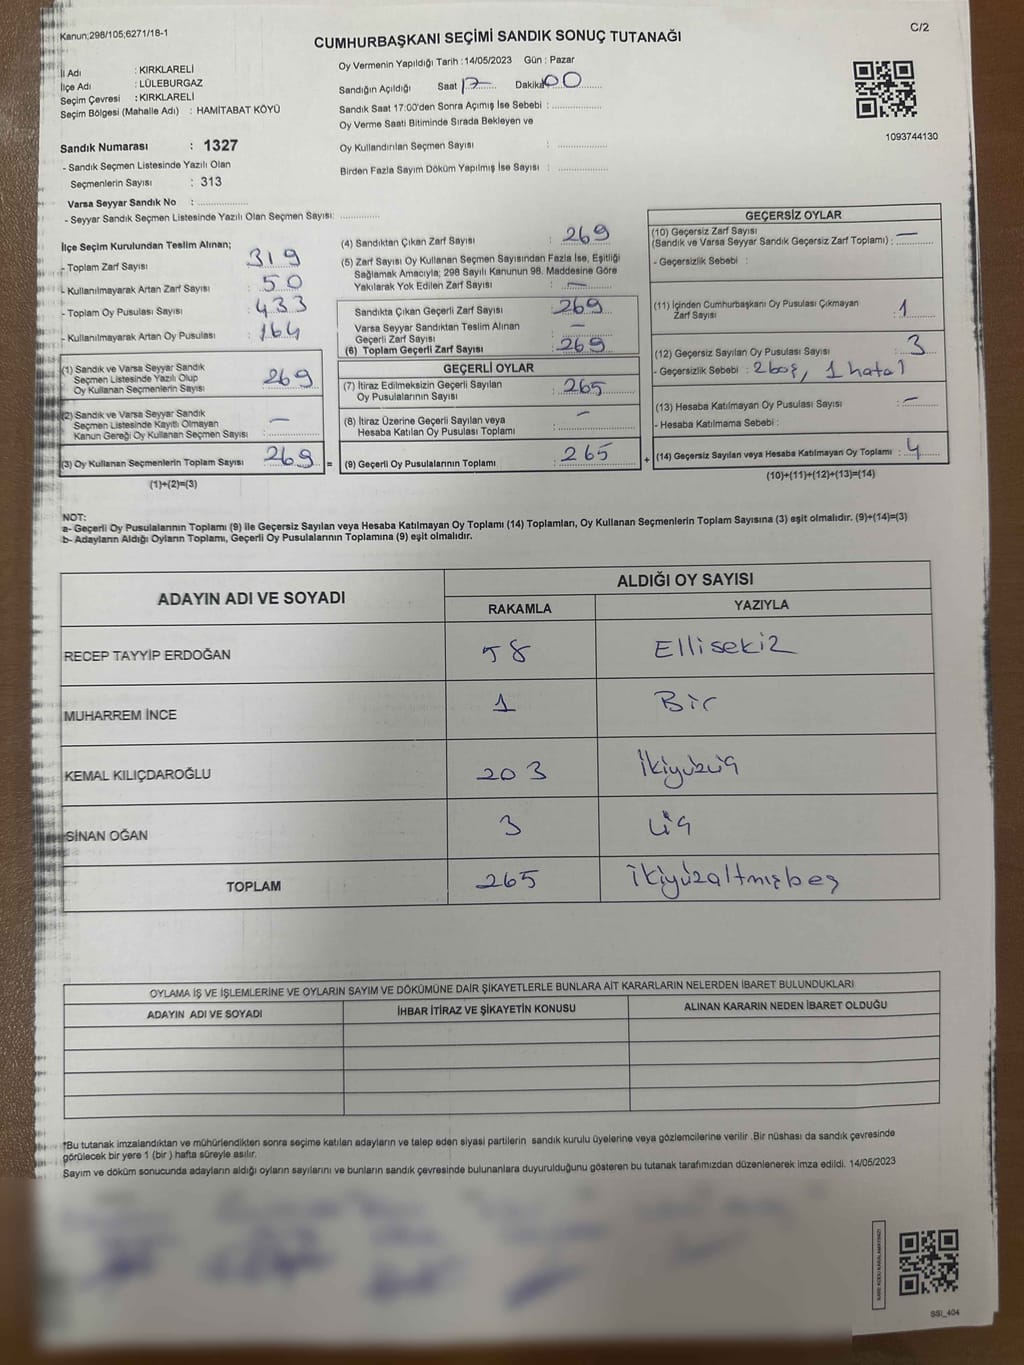 Kanun;298/105;6271/18-1
C/2
CUMHURBAŞKANI SEÇİMİ SANDIK SONUÇ TUTANAĞI
İl Adı : KIRKLARELİ
İlçe Adı : LÜLEBURGAZ
Seçim Çevresi : KIRKLARELİ
Seçim Bölgesi (Mahalle Adı) : HAMİTABAT KÖYÜ
Sandık Numarası : 1327
- Sandık Seçmen Listesinde Yazılı Olan
Seçmenlerin Sayısı : 313
Varsa Seyyar Sandık No : ..................
- Seyyar Sandık Seçmen Listesinde Yazılı Olan Seçmen Sayısı: ..............
Oy Vermenin Yapıldığı Tarih :14/05/2023 Gün : Pazar
Sandığın Açıldığı Saat 17 Dakika 00
Sandık Saat 17:00'den Sonra Açımış İse Sebebi : ..................
Oy Verme Saati Bitiminde Sırada Bekleyen ve
Oy Kullandırılan Seçmen Sayısı : ..................
Birden Fazla Sayım Döküm Yapılmış İse Sayısı : ..................
1093744130
İlçe Seçim Kurulundan Teslim Alınan;
- Toplam Zarf Sayısı : 319
- Kullanılmayarak Artan Zarf Sayısı : 50
- Toplam Oy Pusulası Sayısı : 433
- Kullanılmayarak Artan Oy Pusulası : 164
(1) Sandık ve Varsa Seyyar Sandık
Seçmen Listesinde Yazılı Olup
Oy Kullanan Seçmenlerin Sayısı : 269
(2) Sandık ve Varsa Seyyar Sandık
Seçmen Listesinde Kayıtlı Olmayan
Kanun Gereği Oy Kullanan Seçmen Sayısı : —
(3) Oy Kullanan Seçmenlerin Toplam Sayısı : 269 =
(1)+(2)=(3)
(4) Sandıktan Çıkan Zarf Sayısı : 269
(5) Zarf Sayısı Oy Kullanan Seçmen Sayısından Fazla İse, Eşitliği
Sağlamak Amacıyla; 298 Sayılı Kanunun 98. Maddesine Göre
Yakılarak Yok Edilen Zarf Sayısı : —
Sandıkta Çıkan Geçerli Zarf Sayısı : 269
Varsa Seyyar Sandıktan Teslim Alınan
Geçerli Zarf Sayısı : —
(6) Toplam Geçerli Zarf Sayısı : 269
GEÇERLİ OYLAR
(7) İtiraz Edilmeksizin Geçerli Sayılan
Oy Pusulalarının Sayısı : 265
(8) İtiraz Üzerine Geçerli Sayılan veya
Hesaba Katılan Oy Pusulası Toplamı : —
(9) Geçerli Oy Pusulalarının Toplamı : 265 +
GEÇERSİZ OYLAR
(10) Geçersiz Zarf Sayısı
(Sandık ve Varsa Seyyar Sandık Geçersiz Zarf Toplamı) : —
- Geçersizlik Sebebi :
(11) İçinden Cumhurbaşkanı Oy Pusulası Çıkmayan
Zarf Sayısı : 1
(12) Geçersiz Sayılan Oy Pusulası Sayısı : 3
- Geçersizlik Sebebi : 2 boş, 1 hatal
(13) Hesaba Katılmayan Oy Pusulası Sayısı : —
- Hesaba Katılmama Sebebi :
(14) Geçersiz Sayılan veya Hesaba Katılmayan Oy Toplamı : 4
(10)+(11)+(12)+(13)=(14)
NOT:
a- Geçerli Oy Pusulalarının Toplamı (9) ile Geçersiz Sayılan veya Hesaba Katılmayan Oy Toplamı (14) Toplamları, Oy Kullanan Seçmenlerin Toplam Sayısına (3) eşit olmalıdır. (9)+(14)=(3)
b- Adayların Aldığı Oyların Toplamı, Geçerli Oy Pusulalarının Toplamına (9) eşit olmalıdır.
ADAYIN ADI VE SOYADI
ALDIĞI OY SAYISI
RAKAMLA YAZIYLA
RECEP TAYYİP ERDOĞAN 58 Ellisekiz
MUHARREM İNCE 1 Bir
KEMAL KILIÇDAROĞLU 203 İkiyüzüç
SİNAN OĞAN 3 Üç
TOPLAM 265 İkiyüzaltmışbeş
OYLAMA İŞ VE İŞLEMLERİNE VE OYLARIN SAYIM VE DÖKÜMÜNE DAİR ŞİKAYETLERLE BUNLARA AİT KARARLARIN NELERDEN İBARET BULUNDUKLARI
ADAYIN ADI VE SOYADI İHBAR İTİRAZ VE ŞİKAYETİN KONUSU ALINAN KARARIN NEDEN İBARET OLDUĞU
*Bu tutanak imzalandıktan ve mühürlendikten sonra seçime katılan adayların ve talep eden siyasi partilerin sandık kurulu üyelerine veya gözlemcilerine verilir .Bir nüshası da sandık çevresinde
görülecek bir yere 1 (bir ) hafta süreyle asılır.
Sayım ve döküm sonucunda adayların aldığı oyların sayılarını ve bunların sandık çevresinde bulunanlara duyurulduğunu gösteren bu tutanak tarafımızdan düzenlenerek imza edildi. 14/05/2023
KARE KODU KARALAMAYINIZ!
SSI_404